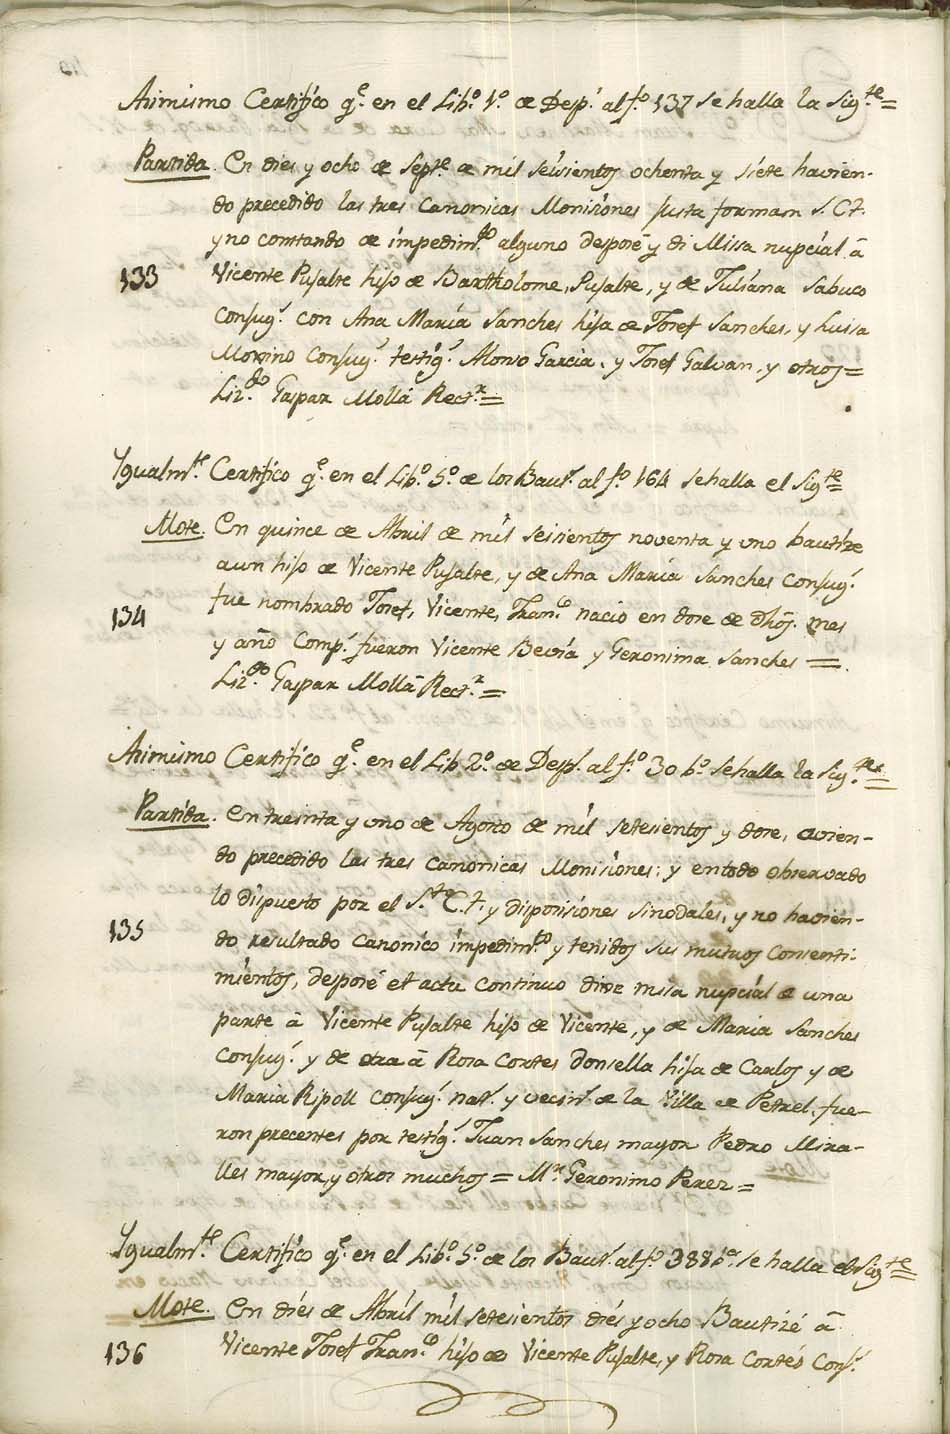 Asimismo Certifico q.e en el Lib.o 1.o de Desp.s al f.o 137 se halla la Sig.te =
Partida. En dies y ocho de Sept.e de mil seisientos ochenta y siete havien-
do precedido las tres canonicas Monisiones justa formam S. C. T.
y no constando de impedim.to alguno desposé y di Missa nupcial á
133
Vicente Pujalte hijo de Bartholome, Pujalte, y de Juliána Sabuco
Conjug.s con Ana María Sanches hija de Josef Sanches, y Luisa
Monzino Conjug.s testig.s Alonso Garcia, y Josef Galvan, y otros =
Liz.do Gaspar Mollá Rect.r =
Ygualm.te Certifico q.e en el Lib.o 5.o de los Baut.s al f.o 164 se halla el Sig.te =
Mote. En quince de Abril de mil seisientos noventa y uno bautize
a un hijo de Vicente Pujalte, y de Ana María Sanches Conjug.s
134
fue nombrado Josef, Vicente, Fran.co nacio en dose de dhos. mes
y año Comp.s fueron Vicente Bevia y Geronima Sanches =
Liz.do Gaspar Mollá Rect.r =
Asimismo Certifico q.e en el Lib 2.o de Desp.s al f.o 30 b.o se halla la Sig.te =
Partida. En treinta y uno de Agosto de mil setesientos y dose, avien-
do precedido las tres canonicas Monisiones; y en todo observado
lo dispuesto por el S.to C. T. y disposisiones sinodales, y no havien-
135
do resultado canonico impedim.to y tenidos sus mutuos Consenti-
mientos, desposé et actu continuo dixe misa nupcial de una
parte á Vicente Pujalte hijo de Vicente, y de Maria Sanches
Conjug.s y de otra á Rosa Cortes Donsella hija de Carlos y de
Maria Ripoll Conjug.s nat.s y vecin.s de la Villa de Petrel, fue-
ron precentes por testig.s Juan Sanches mayor Pedro Mira-
lles mayor, y otros muchos = M.n Geronimo Perez =
Ygualm.te Certifico q.e en el Lib.o 5.o de los Baut.s al f.o 388 b.o se halla el Sig.te =
Mote. En diés de Abril mil setesientos diés y ocho Bautizé á
136
Vicente Josef Fran.co hijo de Vicente Pujalte, y Rosa Cortés Conj.s